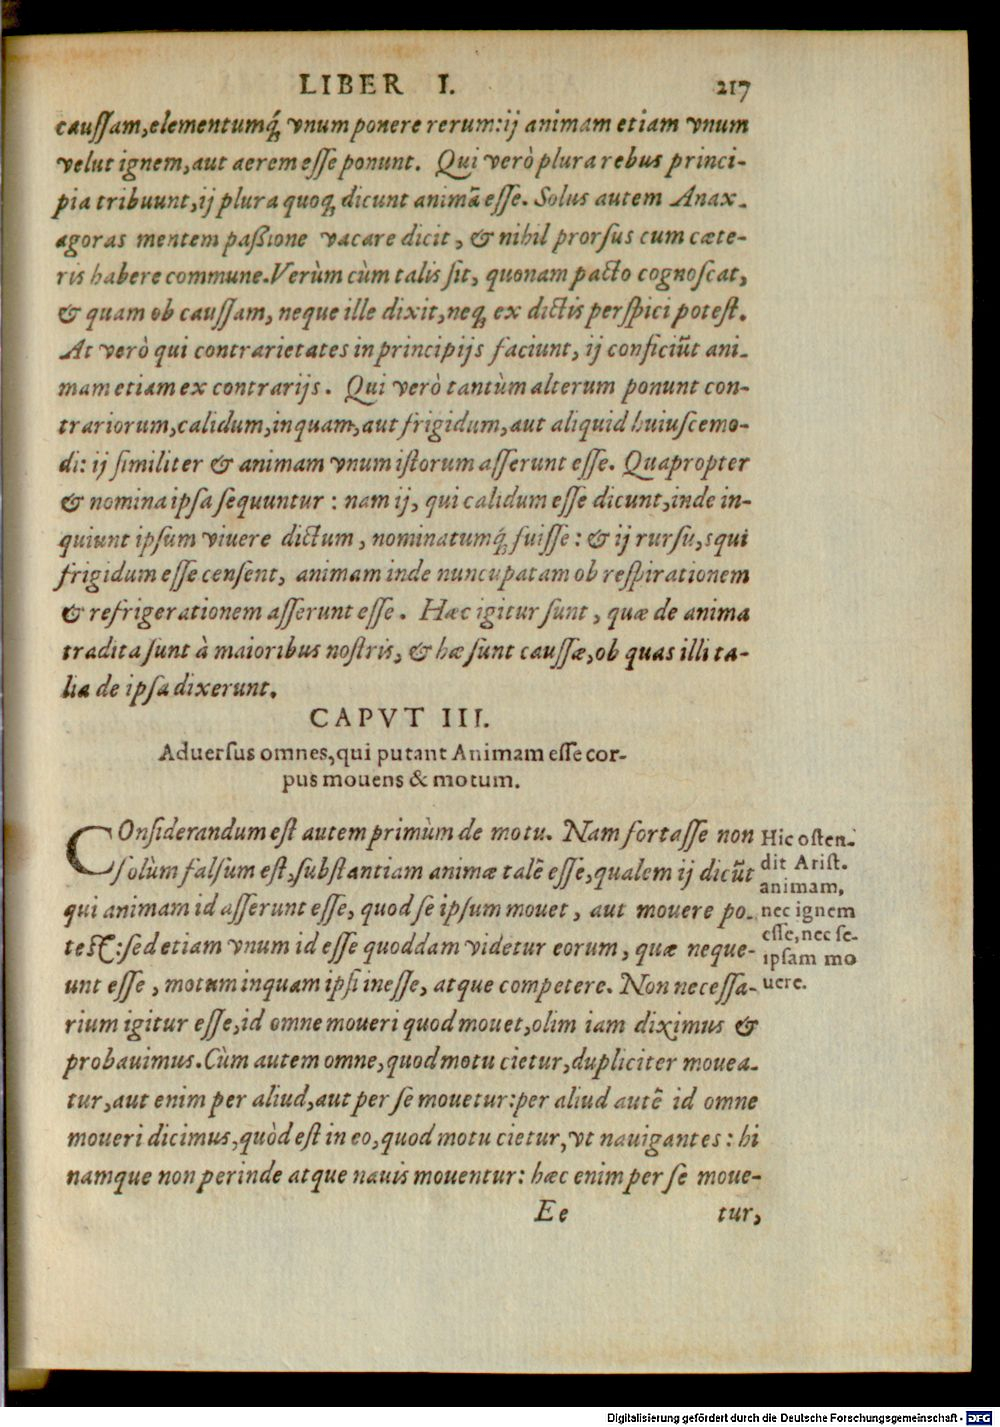 LIBER I. 217
cauſſam, elementumq́; vnum ponere rerum: ij animam etiam vnum
velut ignem, aut aerem eſſe ponunt. Qui verò plura rebus princi-
pia tribuunt, ij plura quoq; dicunt animā eſſe. Solus autem Anax-
agoras mentem paßione vacare dicit, & nihil prorſus cum cæte-
ris habere commune. Verùm cùm talis ſit, quonam pacto cognoſcat,
& quam ob cauſſam, neque ille dixit, neq; ex dictis perſpici poteſt.
At verò qui contrarietates in principijs faciunt, ij conficiūt ani-
mam etiam ex contrarijs. Qui verò tantùm alterum ponunt con-
trariorum, calidum, inquam, aut frigidum, aut aliquid huiuſcemo-
di: ij ſimiliter & animam vnum iſtorum aſſerunt eſſe. Quapropter
& nomina ipſa ſequuntur: nam ij, qui calidum eſſe dicunt, inde in-
quiunt ipſum viuere dictum, nominatumq́; fuiſſe: & ij rurſu, squi
frigidum eſſe cenſent, animam inde nuncupatam ob reſpirationem
& refrigerationem aſſerunt eſſe. Hæc igitur ſunt, quæ de anima
tradita ſunt à maioribus noſtris, & hæ ſunt cauſſæ, ob quas illi ta-
lia de ipſa dixerunt.
CAPVT III.
Aduerſus omnes, qui putant Animam eſſe cor-
pus mouens & motum.
COnſiderandum eſt autem primùm de motu. Nam fortaſſe non
ſolùm falſum eſt, ſubſtantiam animæ talē eſſe, qualem ij dicūt
qui animam id aſſerunt eſſe, quod ſe ipſum mouet, aut mouere po-
teſt: ſed etiam vnum id eſſe quoddam videtur eorum, quæ neque-
unt eſſe, motum inquam ipſi ineſſe, atque competere. Non neceſſa-
rium igitur eſſe, id omne moueri quod mouet, olim iam diximus &
probauimus. Cùm autem omne, quod motu cietur, dupliciter mouea-
tur, aut enim per aliud, aut per ſe mouetur: per aliud autē id omne
moueri dicimus, quòd eſt in eo, quod motu cietur, vt nauigantes: hi
namque non perinde atque nauis mouentur: hæc enim per ſe moue-
Hic oſten-
dit Ariſt.
animam,
nec ignem
eſſe, nec ſe-
ipſam mo
uere.
Ee tur,
Digitalisierung gefördert durch die Deutsche Forschungsgemeinschaft - DFG